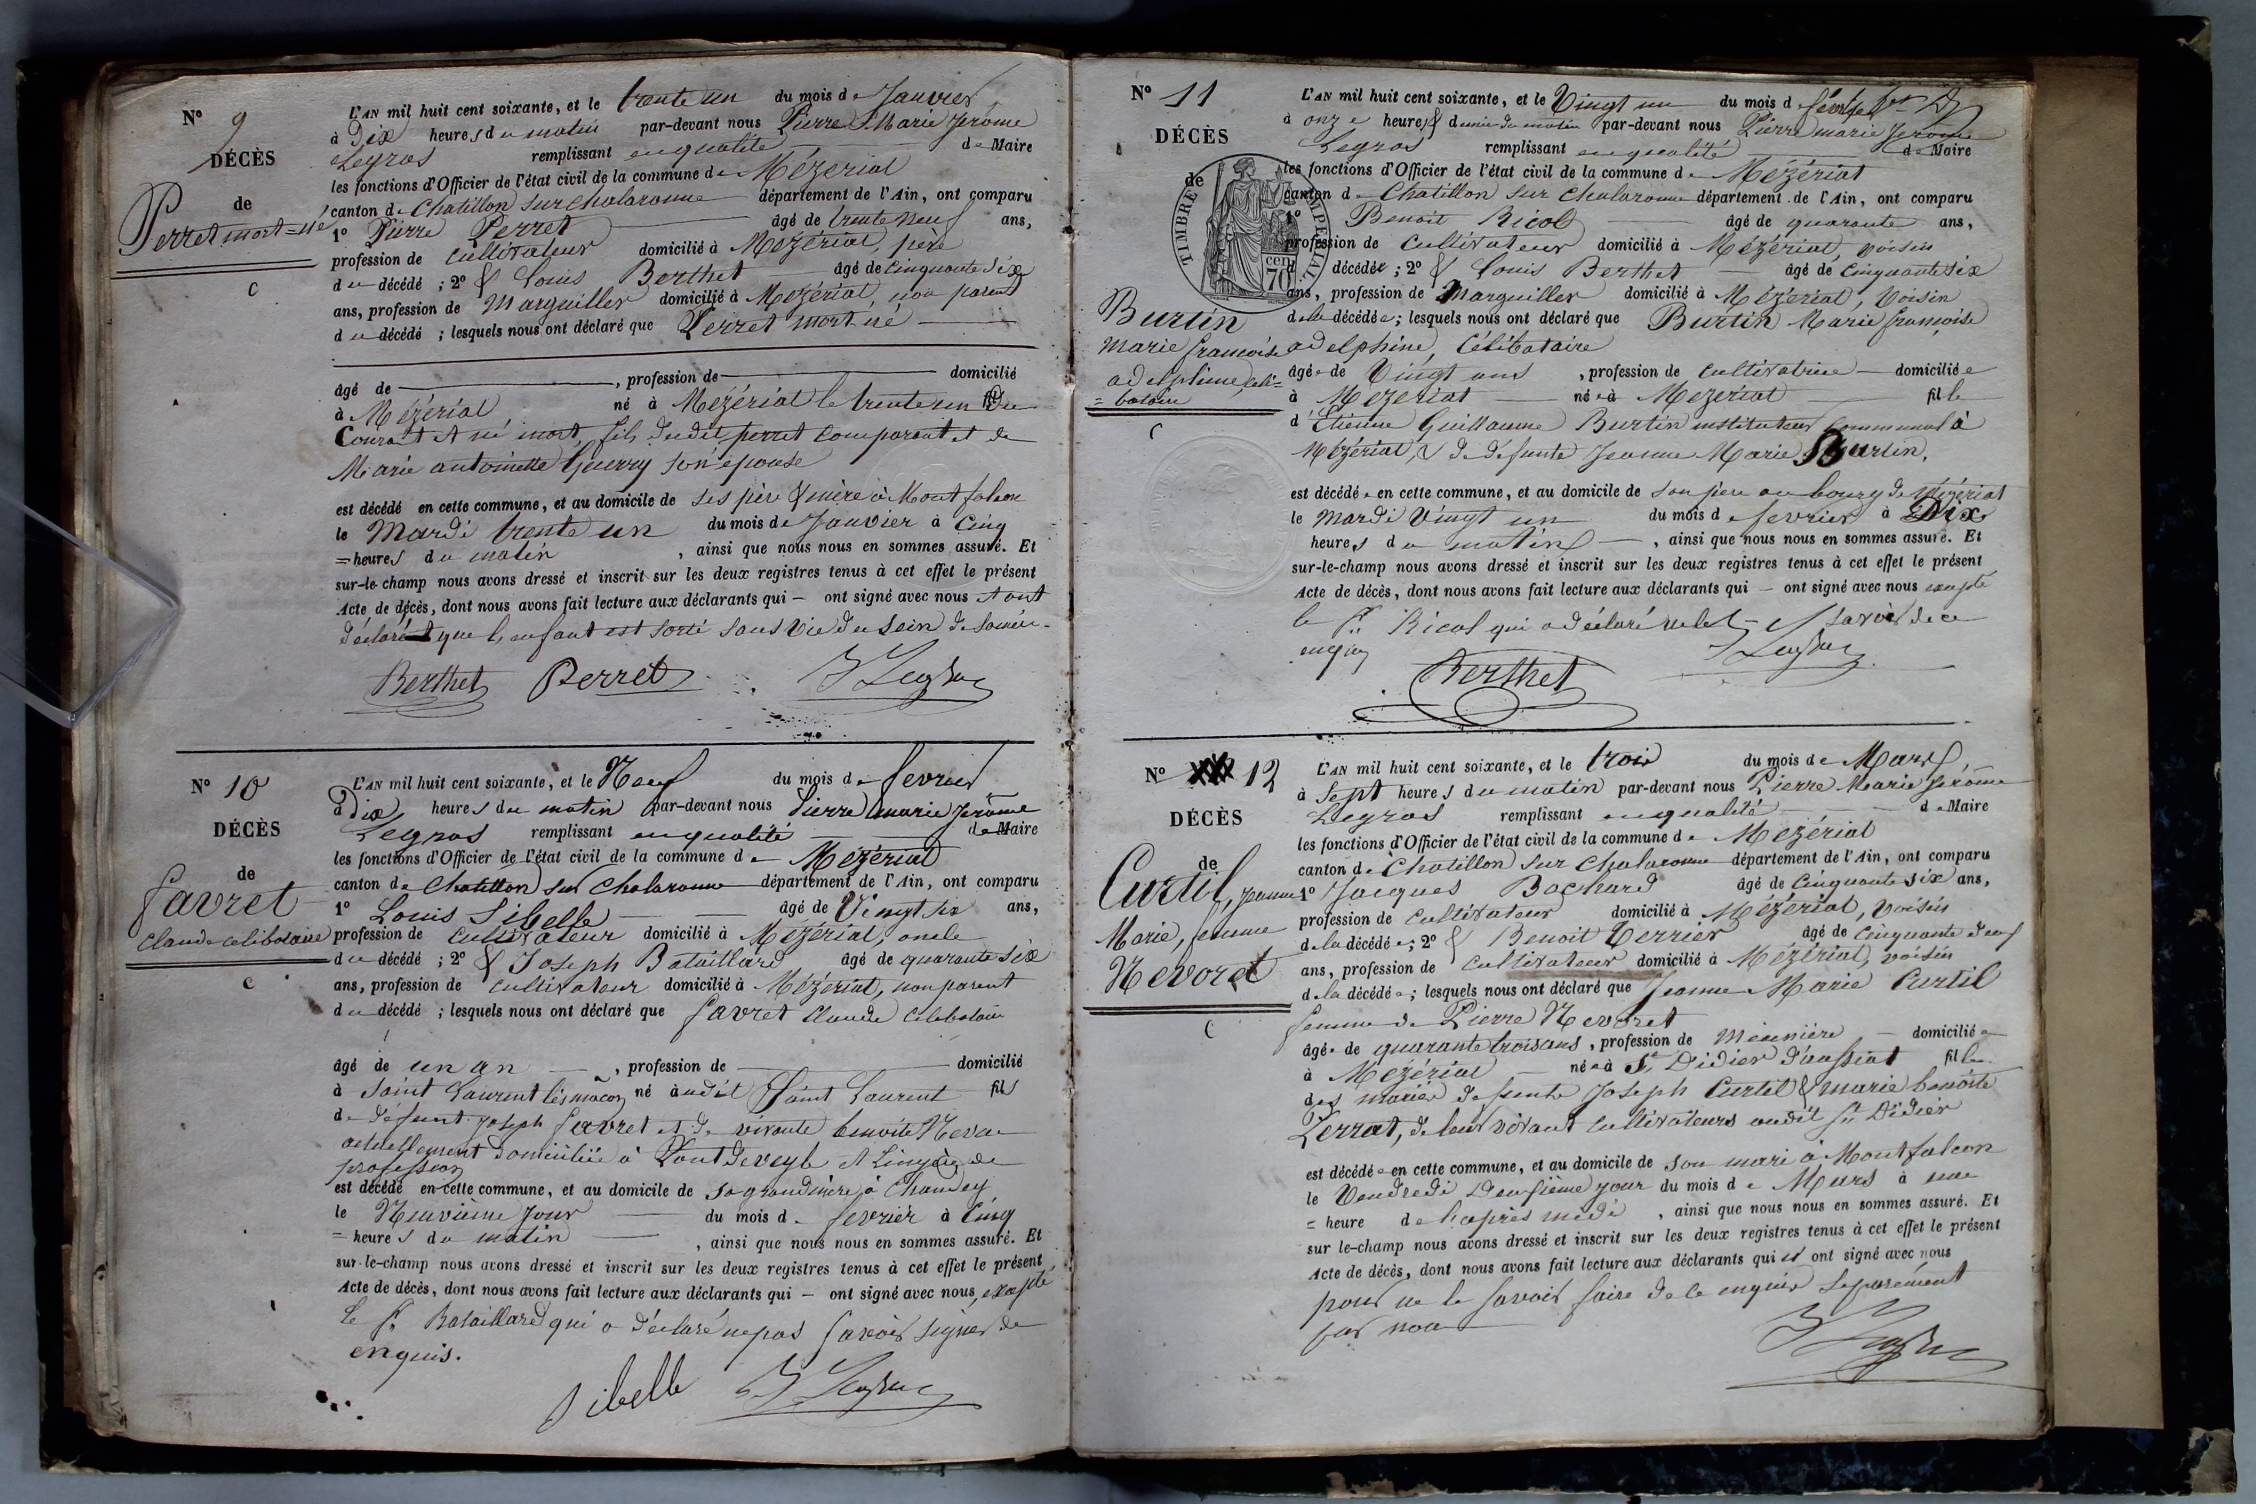 N° 9
DÉCÈS
de
Perret mort=né
C
L'AN mil huit cent soixante, et le trente un du mois de Janvier
à Dix heures du matin par-devant nous Pierre Marie Jérôme
Legros remplissant en qualité de Maire
les fonctions d'Officier de l'état civil de la commune de Mézériat
canton de Chatillon sur chalaronne département de l'Ain, ont comparu
1° Pierre Perret âgé de trente neuf ans,
profession de cultivateur domicilié à Mézériat, père
du décédé ; 2° & Louis Berthet âgé de cinquante six
ans, profession de Marguiller domicilié à Mézériat, non parent
du décédé ; lesquels nous ont déclaré que Perret mort né
âgé de , profession de domicilié
à Mézériat né à Mézériat le trente un du
Courant et né mort, fils dudit perret comparant et de
Marie antoinette Guerry son épouse
est décédé en cette commune, et au domicile de ses père & mère à Montfalcon
le Mardi trente un du mois de Janvier à Cinq
= heures du matin , ainsi que nous nous en sommes assuré. Et
sur-le-champ nous avons dressé et inscrit sur les deux registres tenus à cet effet le présent
Acte de décès, dont nous avons fait lecture aux déclarants qui — ont signé avec nous et ont
déclaré que l'enfant est sorti sans vie du sein de sa mère.
Berthet Perret J Legros
N° 10
DÉCÈS
de
favret
Claude celibataire
C
L'AN mil huit cent soixante, et le Neuf du mois de fevrier
à Dix heures du matin par-devant nous Pierre marie Jerôme
Legros remplissant en qualité de Maire
les fonctions d'Officier de l'état civil de la commune de Mézériat
canton de Chatillon sur Chalaronne département de l'Ain, ont comparu
1° Louis Sibelle âgé de Vingt six ans,
profession de cultivateur domicilié à Mézériat, oncle
du décédé ; 2° & Joseph Bataillard âgé de quarante six
ans, profession de cultivateur domicilié à Mézériat, non parent
du décédé ; lesquels nous ont déclaré que favret Claude celibataire
âgé de un an , profession de domicilié
à Saint Laurent lès mâcon né audit Saint Laurent fils
de défunt Joseph favret et de vivante benoite
actuellement domiciliée à Pontdeveyle et Lingère de
profession
est décédé en cette commune, et au domicile de sa grand mère à Chandey
le Neuvième jour du mois de fevrier à Cinq
= heures du matin , ainsi que nous nous en sommes assuré. Et
sur-le-champ nous avons dressé et inscrit sur les deux registres tenus à cet effet le présent
Acte de décès, dont nous avons fait lecture aux déclarants qui — ont signé avec nous, excepté
le Sr. Bataillard qui a déclaré ne pas savoir signer de
enquis.
Sibelle J Legros
N° 11
DÉCÈS
de
TIMBRE IMPERIAL
cen
70
Burtin
Marie francoise
adelphine, céli=
= bataire
C
L'AN mil huit cent soixante, et le Vingt un du mois de février
à onze heures & demie du matin par-devant nous Pierre marie Jerome
Legros remplissant en qualité de Maire
les fonctions d'Officier de l'état civil de la commune de Mézériat
canton de Chatillon sur chalaronne département de l'Ain, ont comparu
1° Benoit Ricol âgé de quarante ans,
profession de cultivateur domicilié à Mézériat, voisin
décédée ; 2° & Louis Berthet âgé de cinquante six
ans, profession de Marguiller domicilié à Mézériat, Voisin
de la décédée ; lesquels nous ont déclaré que Burtin Marie françoise
adelphine, Célibataire
âgée de Vingt ans , profession de cultivatrice domiciliée
à Mézériat née à Mézériat fille
d'Etienne Guillaume Burtin instituteur Communal à
Mézériat, & de défunte Jeanne Marie Burtin.
est décédée en cette commune, et au domicile de son père au bourg de Mézériat
le Mardi Vingt un du mois de fevrier à Dix
heures du matin , ainsi que nous nous en sommes assuré. Et
sur-le-champ nous avons dressé et inscrit sur les deux registres tenus à cet effet le présent
Acte de décès, dont nous avons fait lecture aux déclarants qui — ont signé avec nous excepté
le Sr. Ricol qui a déclaré ne le savoir de ce
enquis
Berthet J Legros
N° 12
DÉCÈS
de
Curtil, Jeanne
Marie, femme
Nevoret
C
L'AN mil huit cent soixante, et le trois du mois de Mars
à Sept heures du matin par-devant nous Pierre Marie Jerôme
Legros remplissant en qualité de Maire
les fonctions d'Officier de l'état civil de la commune de Mézériat
canton de Chatillon sur Chalaronne département de l'Ain, ont comparu
1° Jacques Bochard âgé de Cinquante six ans,
profession de cultivateur domicilié à Mézériat, Voisin
de la décédée ; 2° & Benoit Terrier âgé de cinquante neuf
ans, profession de cultivateur domicilié à Mézériat, voisin
de la décédée ; lesquels nous ont déclaré que Jeanne Marie Curtil
femme de Pierre Nevoret
âgée de quarante trois ans , profession de Meunière domiciliée
à Mézériat née à St Didier d'aussiat fille
des mariés defunts Joseph Curtil & marie benoite
Perrat, de leur vivant cultivateurs audit St. Didier
est décédée en cette commune, et au domicile de son mari à Montfalcon
le Vendredi Deuxième jour du mois de Mars à une
= heure de l'après midi , ainsi que nous nous en sommes assuré. Et
sur le-champ nous avons dressé et inscrit sur les deux registres tenus à cet effet le présent
Acte de décès, dont nous avons fait lecture aux déclarants qui n' ont signé avec nous
pour ne le savoir faire de ce enquis séparément
par nous
J Legros